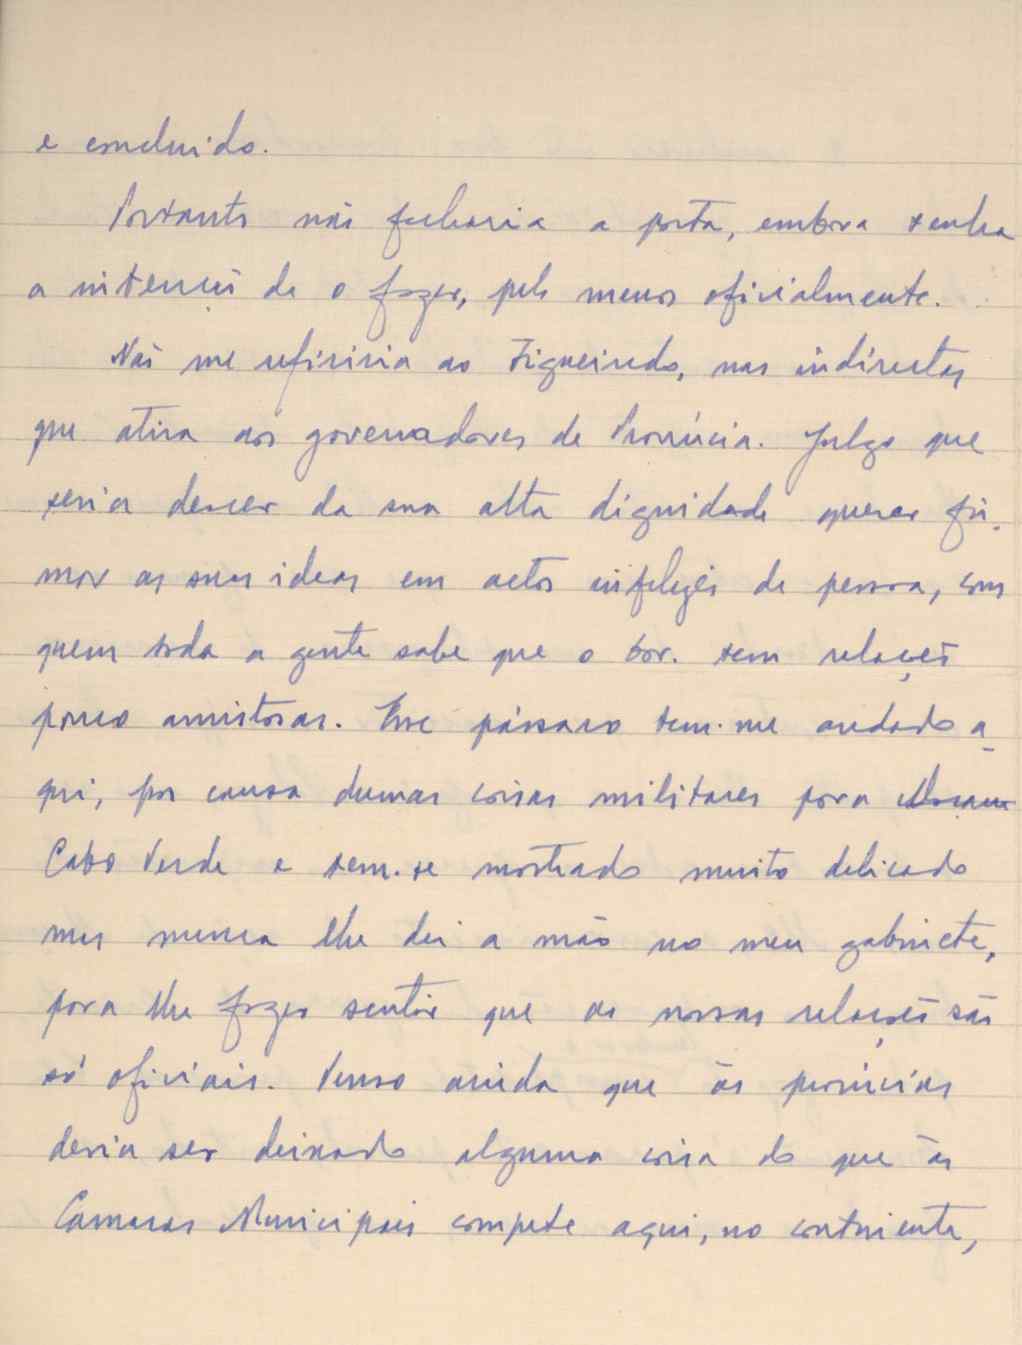 e concluido.
Portanto não fecharia a porta, embora tenha
a intenção de o fazer, pelo menos oficialmente.
Não me refiriria ao Figueiredo, nas indirectas
que atira aos governadores de Provincia. Julgo que
seria descer da sua alta dignidade querer fir-
mar as suas ideas em actos infelizes de pessoa, com
quem toda a gente sabe que o tem relações
pouco amistosas. Esse pássaro tem-me andado a-
qui, por causa dumas coisas militares para
Cabo Verde e tem-se mostrado muito delicado
mas nunca lhe dei a mão no meu gabinete,
para lhe fazer sentir que as nossas relações são
só oficiais. Penso ainda que às provincias
devia ser deixado alguma coisa do que às
Camaras Municipais compete aqui, no continente,